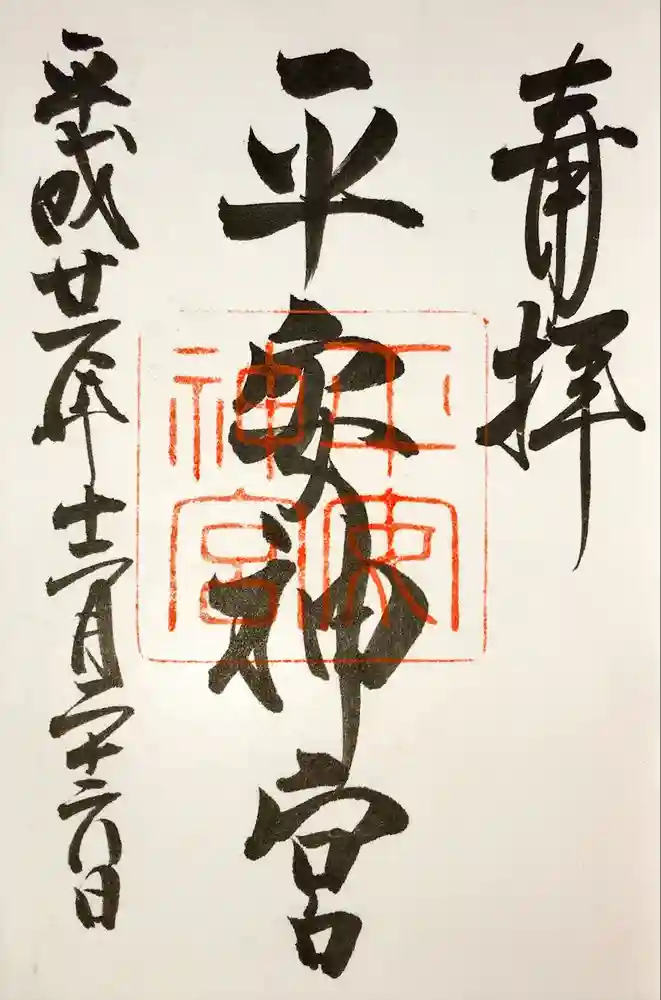 奉拝
平安神宮
平安神宮
平成廿一年十二月二十六日